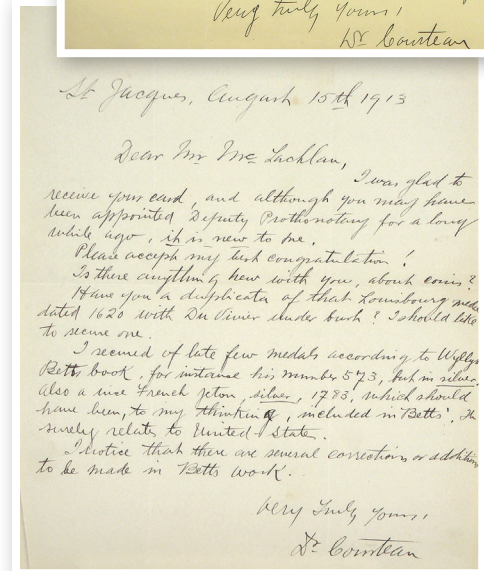 Very truly yours,
Dr Courteau
St Jacques, August 15th 1913
Dear Mr Mc Lachlan,
I was glad to
receive your card, and although you may have
been appointed Deputy Prothonotary for a long
while ago, it is new to me.
Please accept my best congratulation!
Is there anything new with you, about coins?
Have you a duplicata of that Louisbourg
dated 1620 with Du Vivier under bush? I should like
to secure one.
I secured of late few medals according to Wyllys
Betts book, for instance his number 573, but in silver.
also a nice French jeton, silver, 1783, which should
have been, to my thinking, included in Betts'.
surely relates to United States.
I notice that there are several corrections or addition
to be made in Betts work.
Very Truly yours,
Dr Courteau